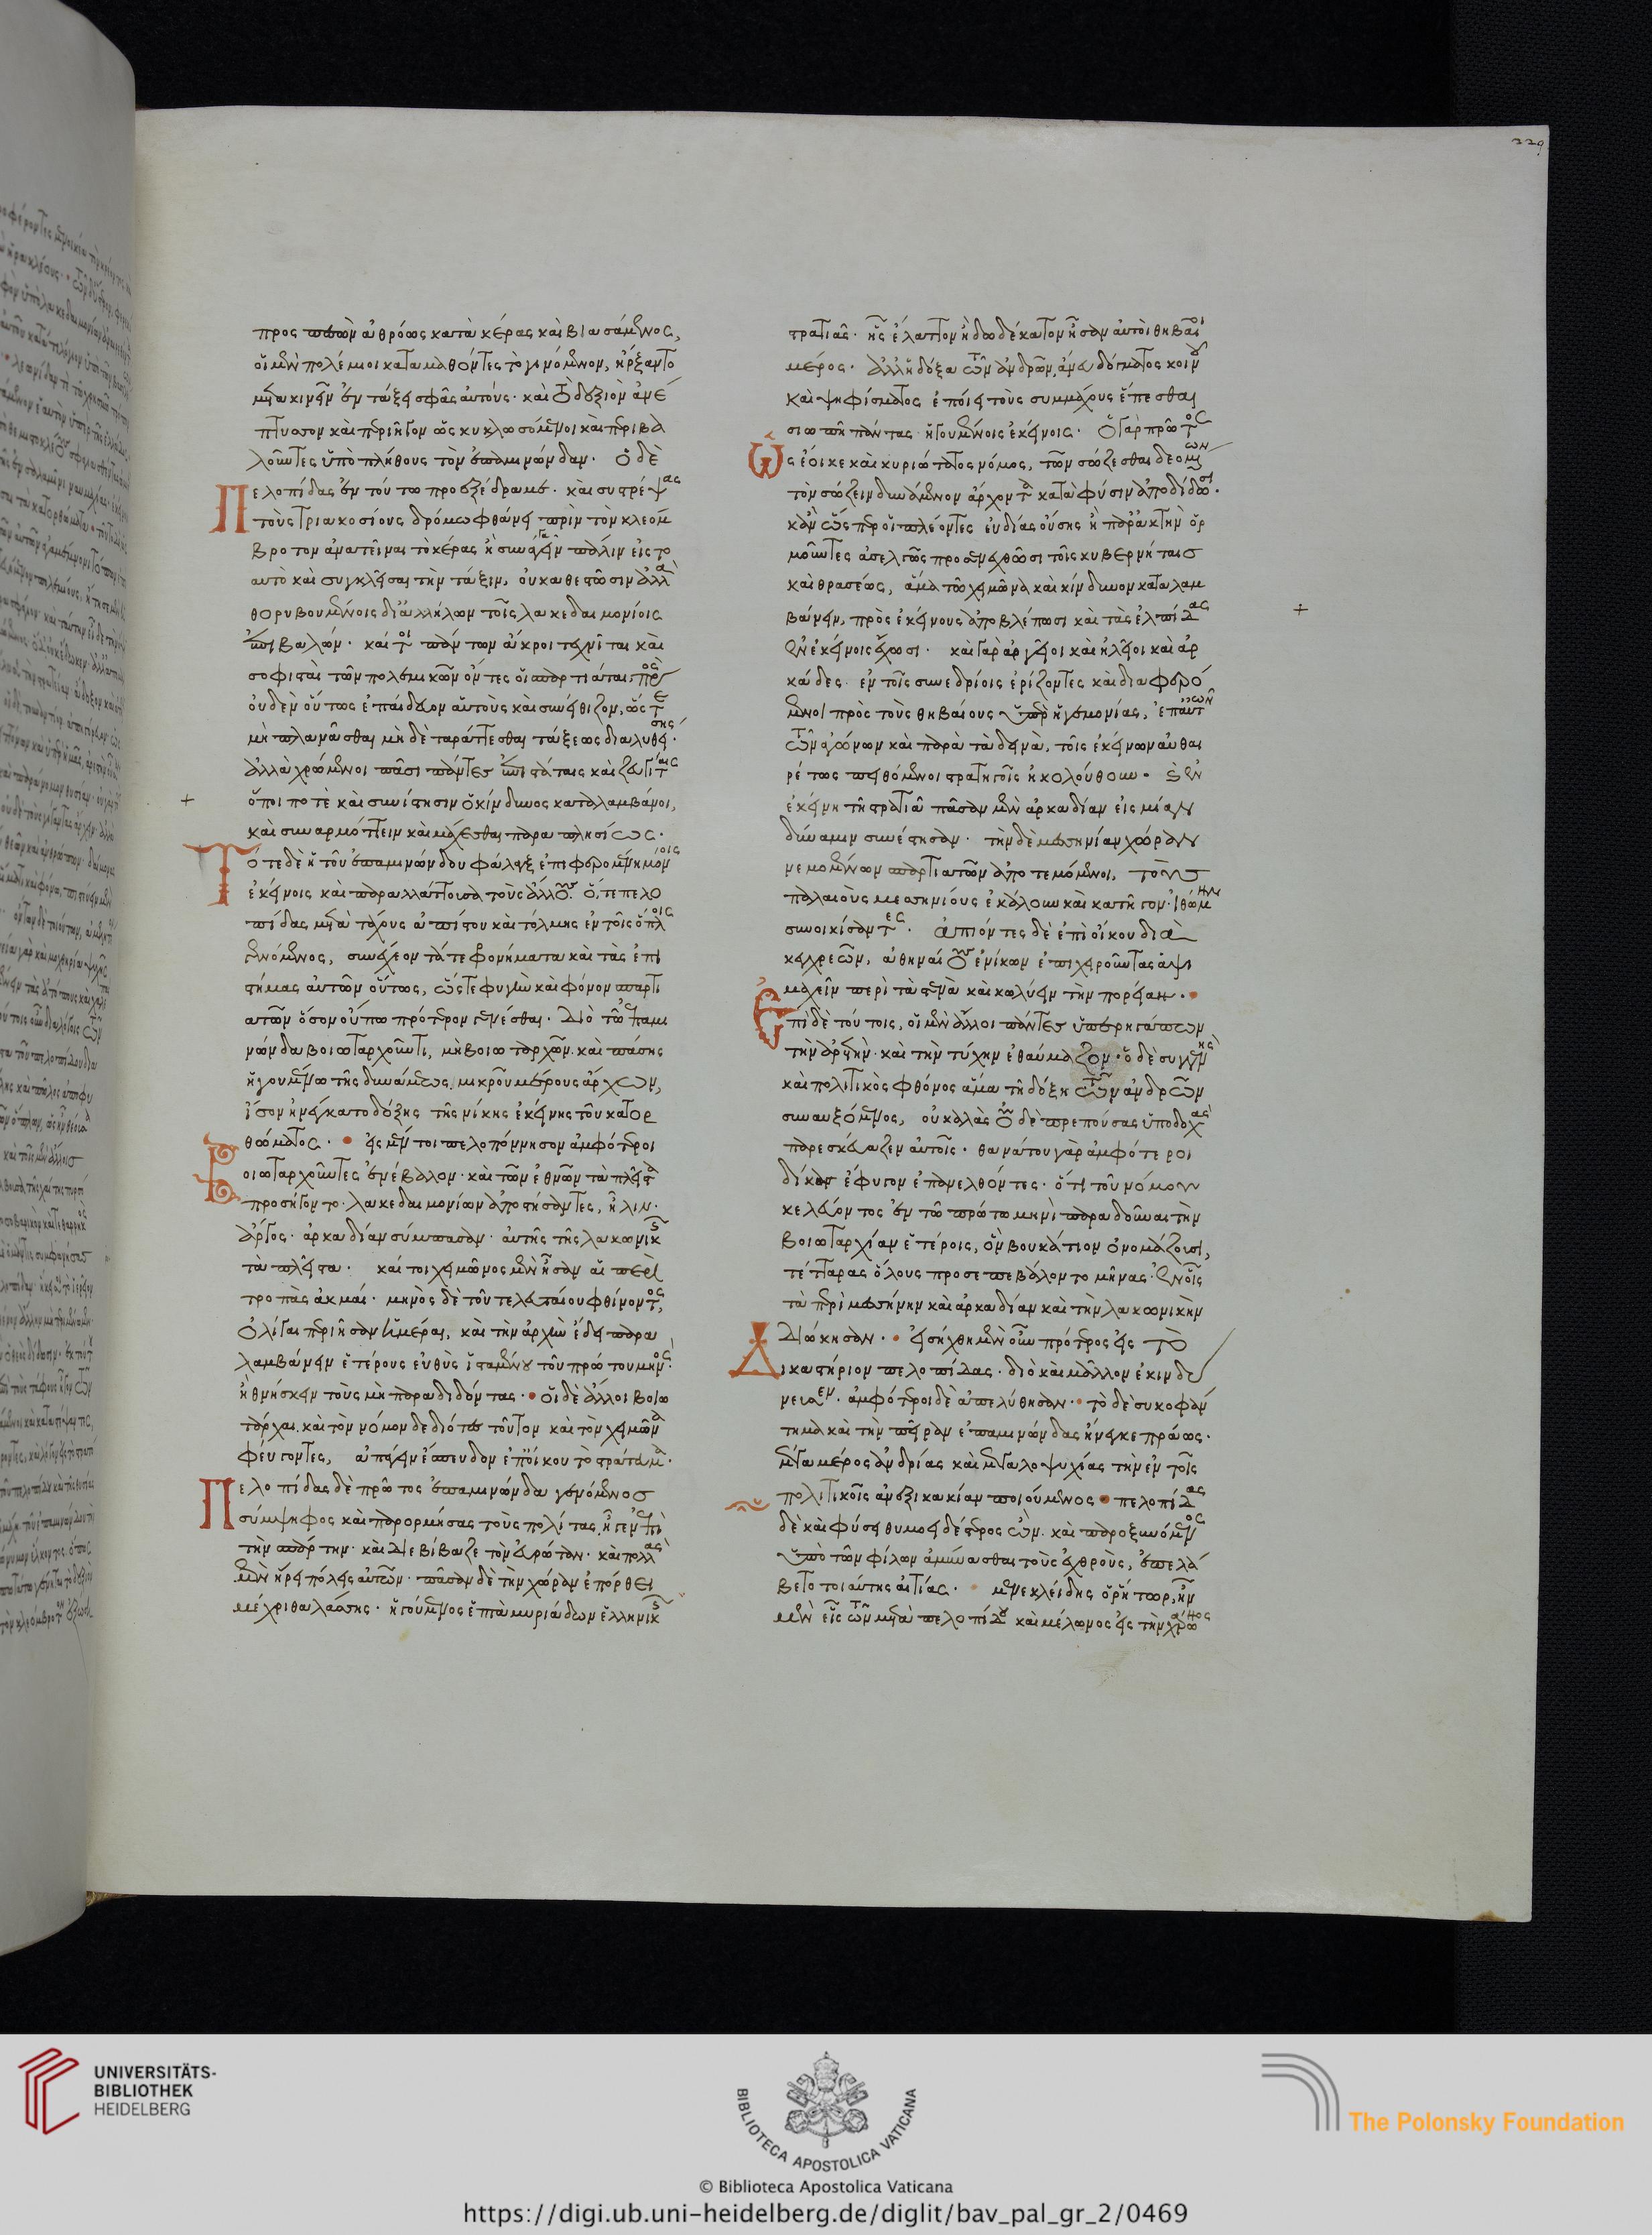 229
προς πεζῶν ἀθρόως κατὰ κέρας καὶ βιασάμενος,
οἱ μὲν πολέμιοι καταμαθόντες τὸ γινόμενον, ἤρξαντο
μετακινεῖν ἐν τάξει σφᾶς αὐτούς· καὶ τὸ δεξιὸν ἀνέ
πτυσσον καὶ περιῆγον ὡς κυκλωσόμενοι καὶ περιβα
λοῦντες ὑπὸ πλήθους τὸν ἐπαμινώνδαν· ὁ δὲ
Πελοπίδας ἐν τούτω προεξέδραμε· καὶ συστρέψας
τοὺς τριακοσίους δρόμω φθάνει πρὶν τὸν κλεόμ
βροτον ἀνατεῖναι τὸ κέρας ἢ συναγαγεῖν πάλιν εἰς το
αυτὸ καὶ συγκλεῖσαι τὴν τάξιν, οὐ καθεστῶσιν ἀλλὰ
θορυβουμένοις δι' ἀλλήλων τοῖς λακεδαιμονίοις
ἐπιβαλών· καίτοι πάντων ἄκροι τεχνῖται καὶ
σοφισταὶ τῶν πολεμικῶν ὄντες οἱ σπαρτιάται πρὸς
οὐδὲν οὕτως ἐπαίδευον αὑτοὺς καὶ συνείθιζον, ὡς τὸ
μὴ πλανᾶσθαι μηδὲ ταράττεσθαι τάξεως διαλυθείσης·
ἀλλὰ χρώμενοι πᾶσι πάντες ἐπιστάταις καὶ ζευγίταις
ὅποι ποτὲ καὶ συνίστησιν ὁ κίνδυνος καταλαμβάνοι,
καὶ συναρμόττειν καὶ μάχεσθαι παραπλησίως·
Τότε δὲ ἡ τοῦ ἐπαμινώνδου φάλαγξ ἐπιφερομένη μόνοις
ἐκείνοις καὶ παραλλάττουσα τοὺς ἄλλους· ὅ, τε πελο
πίδας μετὰ τάχους ἀπίστου καὶ τόλμης ἐν τοῖς ὅπλοις
γενόμενος, συνέχεον τά τε φρονήματα καὶ τὰς ἐπι
στήμας αὐτῶν οὕτως, ὥστε φυγὴν καὶ φόνον σπαρτι
ατῶν ὅσον οὔπω πρότερον γενέσθαι· Διὸ τῶ ἐπαμι
νώνδα βοιωταρχοῦντι, μὴ βοιωταρχῶν· καὶ πάσης
ἡγουμένω τῆς δυνάμεως, μικροῦ μέρους ἄρχων,
ἴσον ἠνέγκατο δόξης τῆς νίκης ἐκείνης τοῦ κατορ
θώματος· εἰς μέν τοι πελοπόννησον ἀμφότεροι
Βοιωταρχοῦντες ἐνέβαλον· καὶ τῶν ἐθνῶν τὰ πλεῖστα
προσήγοντο· λακεδαιμονίων ἀποστήσαντες, ἦλιν·
ἄργος· ἀρκαδίαν σύμπασαν· αὐτῆς τῆς λακωνικῆς
τὰ πλεῖστα· καίτοι χειμῶνος μὲν ἦσαν αἱ περὶ
τροπὰς ἀκμαί· μηνὸς δὲ τοῦ τελευταίου φθίνοντος,
ὀλίγαι περιῆσαν ἡμέραι, καὶ τὴν ἀρχὴν ἔδει παρα
λαμβάνειν ἑτέρους εὐθὺς ἱσταμένου τοῦ πρώτου μηνός·
ἢ θνήσκειν τοὺς μὴ παραδιδόντας· οἱ δὲ ἄλλοι βοιω
τάρχαι· καὶ τὸν νόμον δεδιότες τοῦτον καὶ τὸν χειμῶνα
φεύγοντες, ἀπάγειν ἔσπευδον ἐπ' οἴκου τὸ στράτευμα·
Πελοπίδας δὲ πρῶτος ἐπαμινώνδα γενόμενος
σύμψηφος καὶ παρορμήσας τοὺς πολίτας, ἦγεν ἐπὶ
τὴν σπάρτην· καὶ Διεβίβαζε τὸν εὐρώταν· καὶ πολλὰς
μὲν ἥρει πόλεις αὐτῶν· πᾶσαν δὲ τὴν χώραν ἐπόρθει
μέχρι θαλάσσης· ἡγούμενος ἑπτὰ μυριάδων ἑλληνικῆς
στρατιᾶς· ἧς ἔλαττον ἢ δωδέκατον ἦσαν αὐτοὶ θηβαῖοι
μέρος· ἀλλ' ἡ δόξα τῶν ἀνδρῶν, ἄνευ δόγματος κοινοῦ
καὶ ψηφίσματος ἐποίει τοὺς συμμάχους ἕπεσθαι
σιωπῆ πάντας ἡγουμένοις ἐκείνοις· Ὁ γὰρ πρῶτος
Ὡς ἔοικε καὶ κυριώτατος νόμος, τῶν σώζεσθαι δεομένων
τὸν σώζειν δυνάμενον ἄρχοντα κατὰ φύσιν ἀποδίδωσι·
κἂν ὥσπερ οἱ πλέοντες εὐδίας οὔσης ἢ παρ' ἀκτὴν ὁρ
μοῦντες ἀσελγῶς προσενεχθῶσι τοῖς κυβερνήταις
καὶ θρασέως, ἅμα τῶ χειμῶνα καὶ κίνδυνον καταλαμ
βάνειν, πρὸς ἐκείνους ἀποβλέπουσι καὶ τὰς ἐλπίδας
ἐν ἐκείνοις ἔχουσι· καὶ γὰρ ἀργεῖοι καὶ ἠλεῖοι καὶ ἀρ
κάδες· ἐν τοῖς συνεδρίοις ἐρίζοντες καὶ διαφερό
μενοι πρὸς τοὺς θηβαίους ὑπὲρ ἡγεμονίας, ἐπ' αὐτῶν
τῶν ἀγώνων καὶ παρὰ τὰ δεινὰ, τοῖς ἐκείνων αὐθαι
ρέτως πειθόμενοι στρατηγοῖς ἠκολούθουν· ἐν
ἐκείνη τῆ στρατιᾶ πᾶσαν μὲν ἀρκαδίαν εἰς μίαν
δύναμιν συνέστησαν· τὴν δὲ μεσσηνίαν χώραν
νεμομένων σπαρτιατῶν ἀποτεμόμενοι, τοὺς
παλαιοὺς μεσσηνίους ἐκάλουν καὶ κατῆγον· ἰθώμην
συνοικίσαντες· ἀπιόντες δὲ ἐπὶ οἴκου διὰ
κεγχρεῶν, ἀθηναίους ἐνίκων ἐπιχειροῦντας ἁψι
μαχεῖν περὶ τὰ στενὰ καὶ κωλύειν τὴν πορείαν·
Ἐπὶ δὲ τούτοις, οἱ μὲν ἄλλοι πάντες ὑπερηγάπων
τὴν ἀρετὴν· καὶ τὴν τύχην ἐθαύμαζον· ὁ δὲ συγγενὴς
καὶ πολιτικὸς φθόνος ἅμα τῆ δόξη τῶν ἀνδρῶν
συναυξόμενος, οὐ καλὰς οὐδὲ πρεπούσας ὑποδοχὰς
παρεσκεύαζεν αὐτοῖς· θανάτου γὰρ ἀμφότεροι
δίκας ἔφυγον ἐπανελθόντες· ὅτι τοῦ νόμου
κελεύοντος ἐν τῶ πρώτω μηνὶ παραδοῦναι τὴν
βοιωταρχίαν ἑτέροις, ὃν βουκάτιον ὀνομάζουσι,
τέτταρας ὅλους προσεπεβάλοντο μῆνας· ἐν οἷς
τὰ περὶ μεσσήνην καὶ ἀρκαδίαν καὶ τὴν λακωνικὴν
Διώκησαν· εἰσήχθη μὲν οὖν πρότερος εἰς τὸ
Δικαστήριον πελοπίδας· διὸ καὶ μᾶλλον ἐκινδύ
νευσεν· ἀμφότεροι δὲ ἀπελύθησαν· τὸ δὲ συκοφάν
τημα καὶ τὴν πεῖραν ἐπαμινώνδας ἤνεγκε πράως·
μέγα μέρος ἀνδρίας καὶ μεγαλοψυχίας τὴν ἐν τοῖς
πολιτικοῖς ἀνεξικακίαν ποιούμενος· πελοπίδας
δὲ καὶ φύσει θυμοειδέστερος ὢν· καὶ παροξυνόμενος
ὑπὸ τῶν φίλων ἀμύνασθαι τοὺς ἐχθροὺς, ἐπελά
βετο τοιαύτης αἰτίας· μενεκλείδης ὁ ῥήτωρ, ἦν
μὲν εἷς τῶν μετὰ πελοπίδου καὶ μέλωνος εἰς τὴν χάρωνος
UNIVERSITÄTS-
BIBLIOTHEK
HEIDELBERG
BIBLIOTECA APOSTOLICA VATICANA
The Polonsky Foundation
© Biblioteca Apostolica Vaticana
https://digi.ub.uni-heidelberg.de/diglit/bav_pal_gr_2/0469